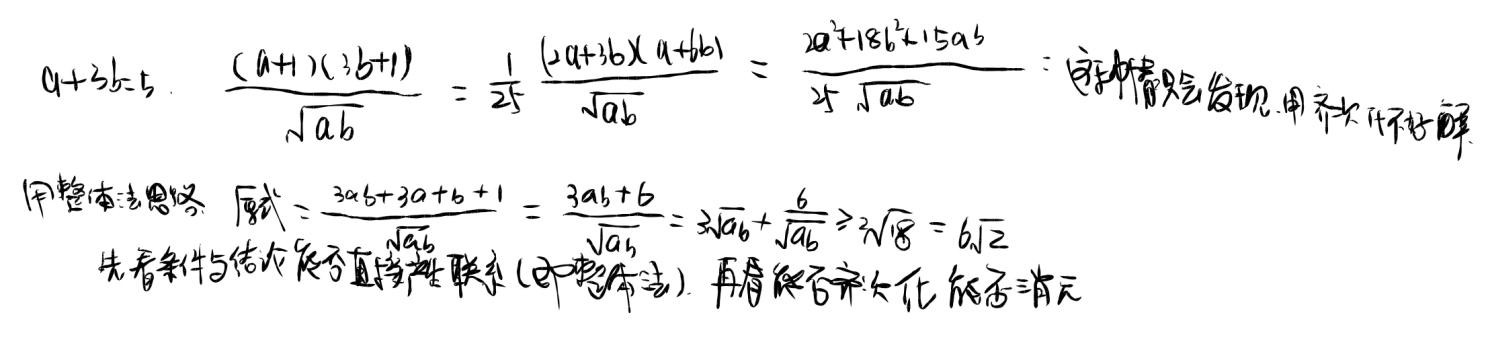 a+3b=5. \frac{(a+1)(3b+1)}{\sqrt{ab}} = \frac{1}{25} \frac{(2a+3b)(a+6b)}{\sqrt{ab}} = \frac{2a^2+18b^2+15ab}{25\sqrt{ab}} : 这种情况会发现.用齐次化不好解.
用整体法思路. 原式 = \frac{3ab+3a+b+1}{\sqrt{ab}} = \frac{3ab+6}{\sqrt{ab}} = 3\sqrt{ab} + \frac{6}{\sqrt{ab}} ≥ 2\sqrt{18} = 6\sqrt{2}
先看条件与结论能否直接产生联系(即整体法). 再看能否齐次化 能否消元